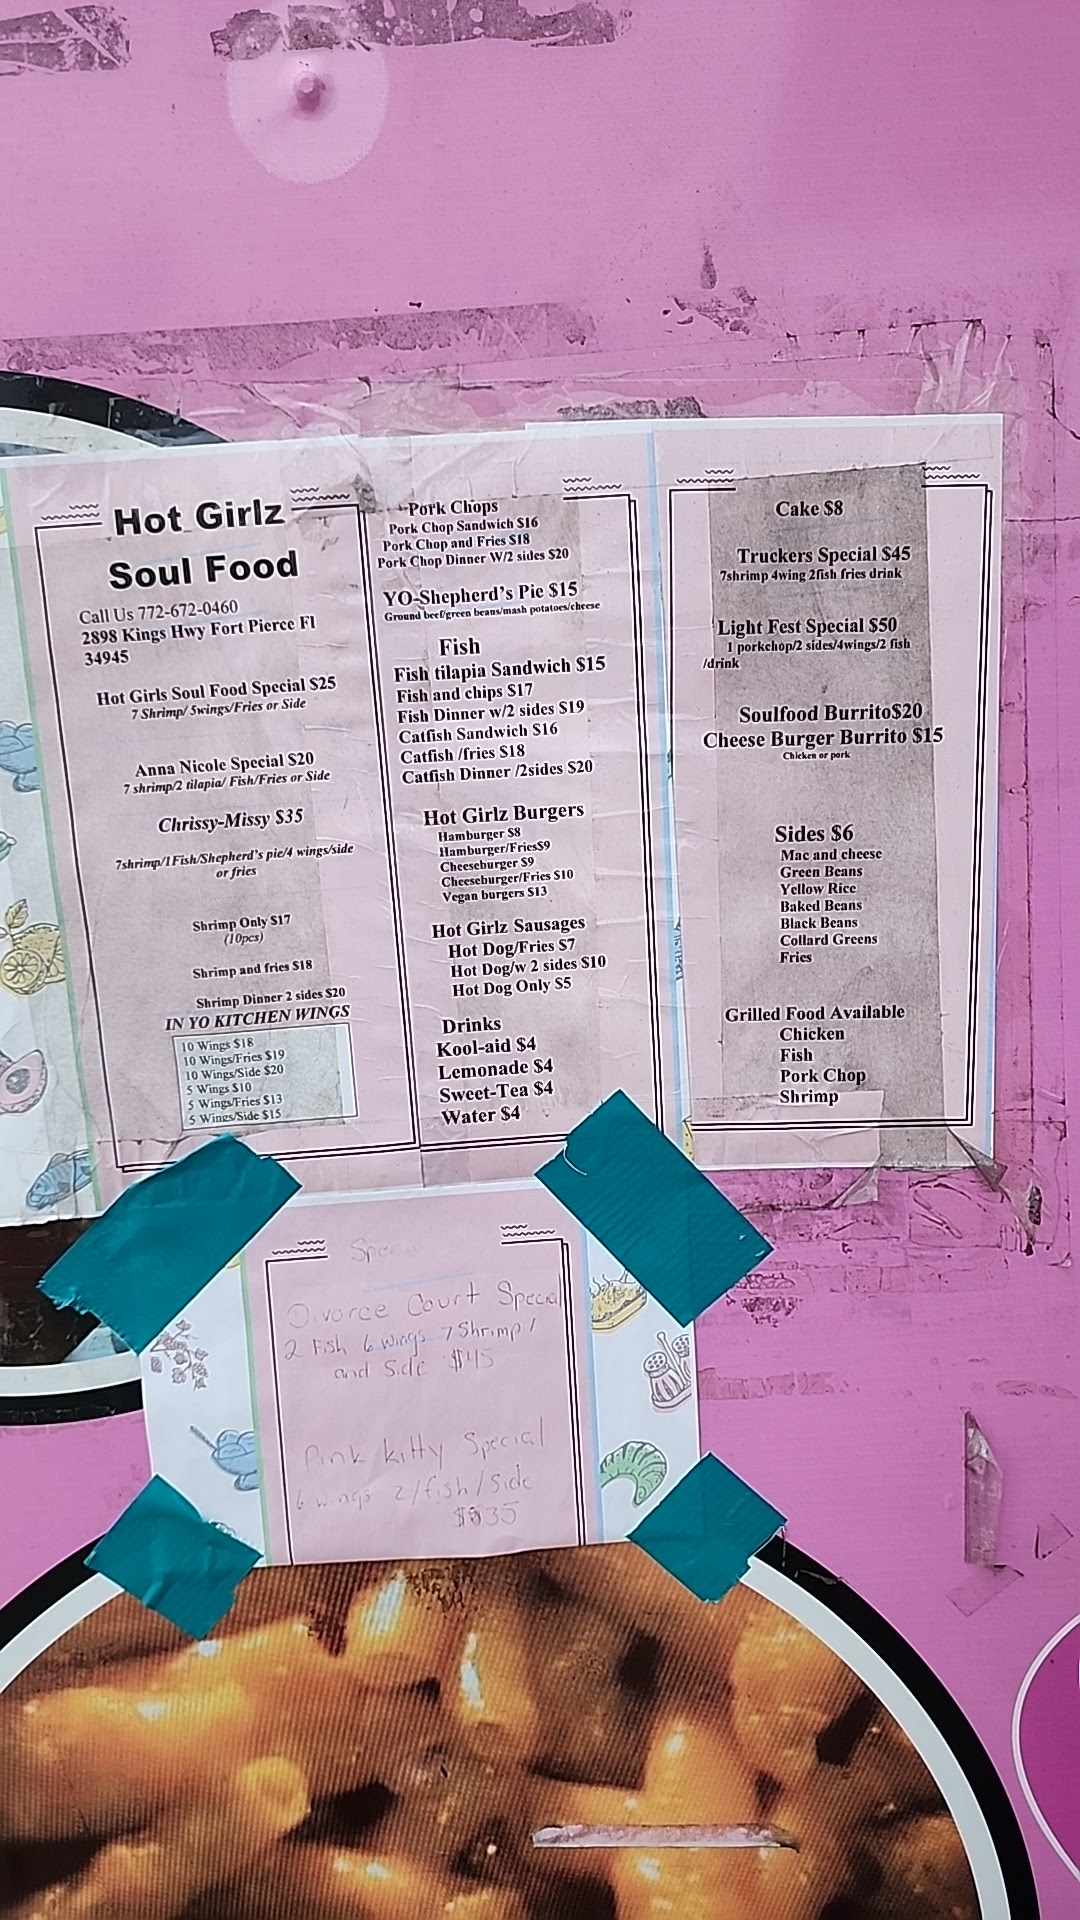 Hot Girlz
Soul Food
Call Us 772-672-0460
2898 Kings Hwy Fort Pierce Fl
34945
Hot Girls Soul Food Special $25
7 Shrimp/ 5wings/Fries or Side
Anna Nicole Special $20
7 shrimp/2 tilapia/ Fish/Fries or Side
Chrissy-Missy $35
7shrimp/1Fish/Shepherd's pie/4 wings/side
or fries
Shrimp Only $17
(10pcs)
Shrimp and fries $18
Shrimp Dinner 2 sides $20
IN YO KITCHEN WINGS
10 Wings $18
10 Wings/Fries $19
10 Wings/Side $20
5 Wings $10
5 Wings/Fries $13
5 Wings/Side $15
Pork Chops
Pork Chop Sandwich $16
Pork Chop and Fries $18
Pork Chop Dinner W/2 sides $20
YO-Shepherd's Pie $15
Ground beef/green beans/mash potatoes/cheese
Fish
Fish tilapia Sandwich $15
Fish and chips $17
Fish Dinner w/2 sides $19
Catfish Sandwich $16
Catfish /fries $18
Catfish Dinner /2sides $20
Hot Girlz Burgers
Hamburger $8
Hamburger/Fries$9
Cheeseburger $9
Cheeseburger/Fries $10
Vegan burgers $13
Hot Girlz Sausages
Hot Dog/Fries $7
Hot Dog/w 2 sides $10
Hot Dog Only $5
Drinks
Kool-aid $4
Lemonade $4
Sweet-Tea $4
Water $4
Cake $8
Truckers Special $45
7shrimp 4wing 2fish fries drink
Light Fest Special $50
1 porkchop/2 sides/4wings/2 fish
/drink
Soulfood Burrito$20
Cheese Burger Burrito $15
Chicken or pork
Sides $6
Mac and cheese
Green Beans
Yellow Rice
Baked Beans
Black Beans
Collard Greens
Fries
Grilled Food Available
Chicken
Fish
Pork Chop
Shrimp
Divorce Court Special
2 Fish 6 wings 7 Shrimp /
and Side $45
Pink Kitty Special
6 wings 2/fish/side
$35